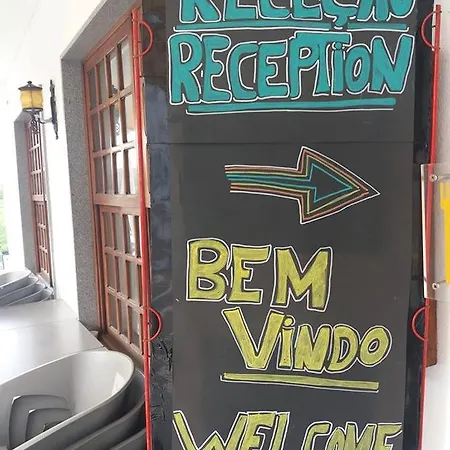 RECEÇÃO
RECEPTION
BEM
VINDO
WELCOME